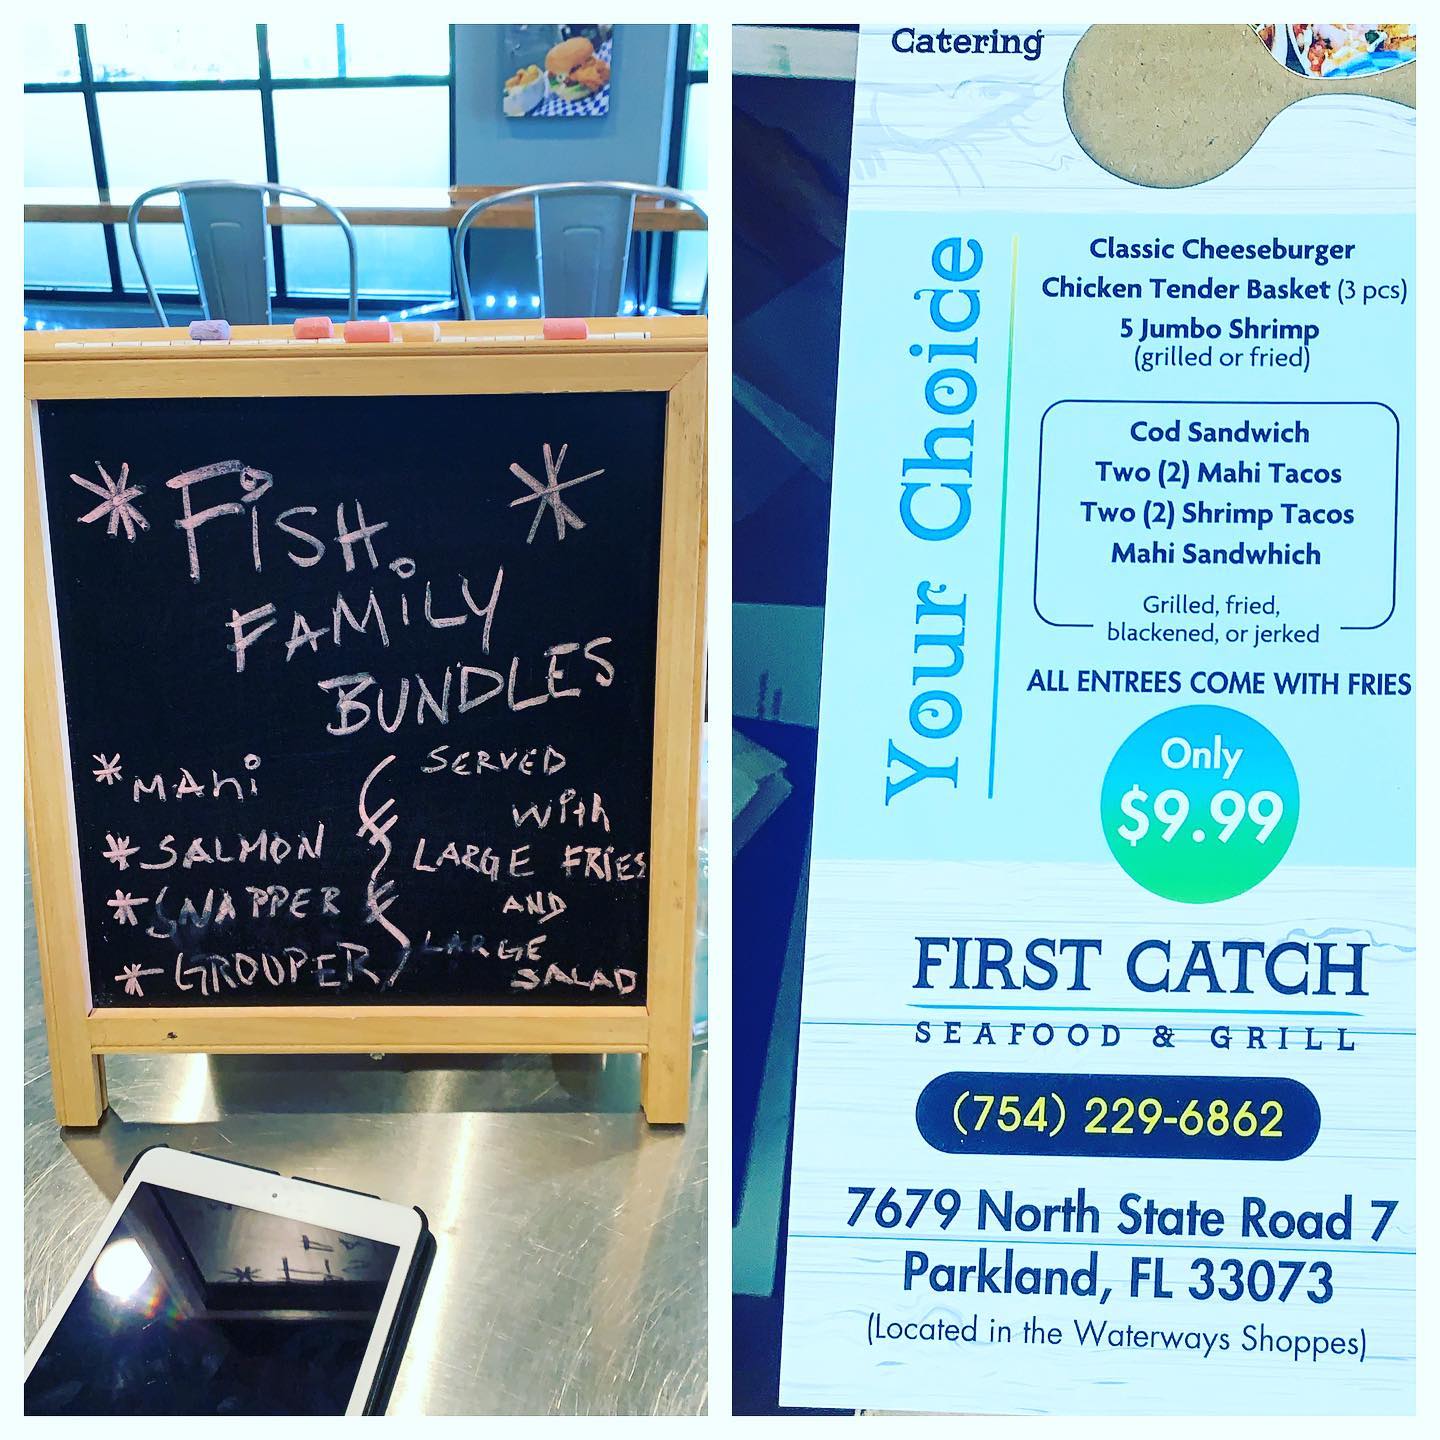 * FiSH. *
FAMiLY
BUNDLES
* MAhi
* SALMON
* SNAPPER
* GROUPER
SERVED
With
LARGE FRiES
AND
LARGE
SALAD
Catering
Your Choice
Classic Cheeseburger
Chicken Tender Basket (3 pcs)
5 Jumbo Shrimp
(grilled or fried)
Cod Sandwich
Two (2) Mahi Tacos
Two (2) Shrimp Tacos
Mahi Sandwhich
Grilled, fried,
blackened, or jerked
ALL ENTREES COME WITH FRIES
Only
$9.99
FIRST CATCH
SEAFOOD & GRILL
(754) 229-6862
7679 North State Road 7
Parkland, FL 33073
(Located in the Waterways Shoppes)